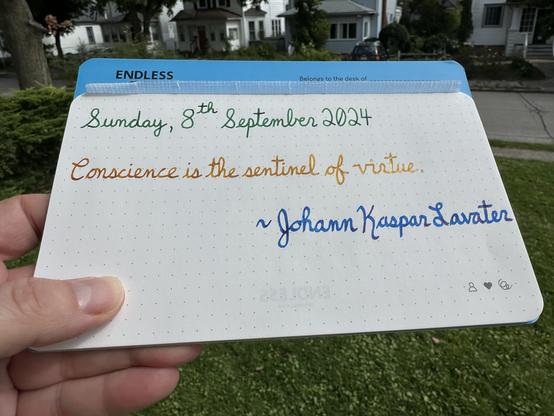 ENDLESS
Belongs to the desk of
Sunday, 8th September 2024
Conscience is the sentinel of virtue.
~ Johann Kaspar Lavater
ENDLESS